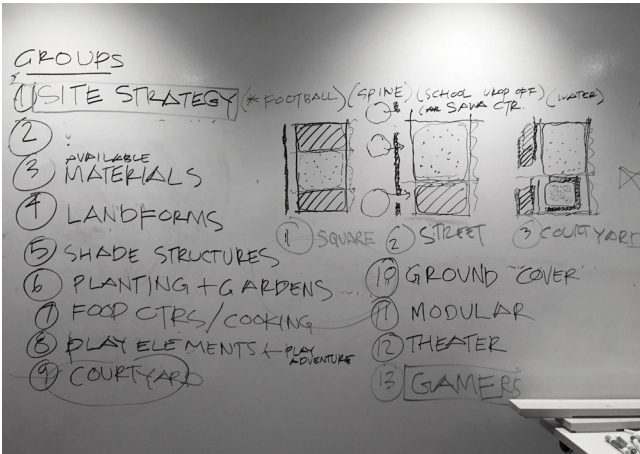 GROUPS
1 SITE STRATEGY (* FOOTBALL) (SPINE) (SCHOOL DROP OFF) (WATER)
OR SAWA CTR.
2 :
3 AVAILABLE
MATERIALS
4 LANDFORMS
5 SHADE STRUCTURES
6 PLANTING + GARDENS ...
7 FOOD CTRS/COOKING
8 PLAY ELEMENTS ← PLAY
ADVENTURE
9 COURTYARD
1 SQUARE 2 STREET 3 COURTYARD
10 GROUND "COVER"
11 MODULAR
12 THEATER
13 GAMERS